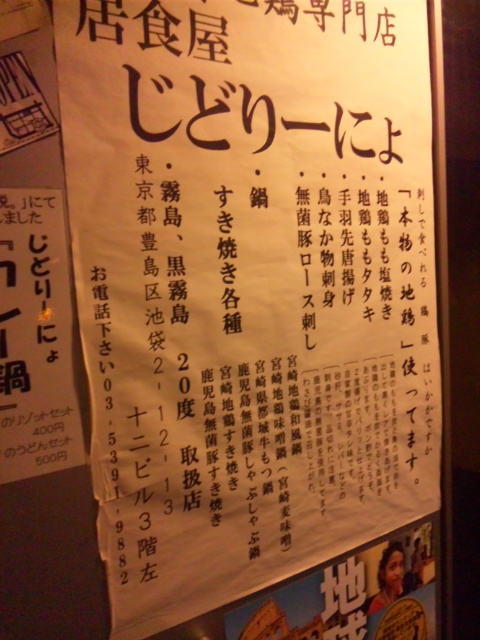 地鶏専門店
居食屋
じどりーにょ
刺しで食べれる 鶏 豚 はいかがですか
「本物の地鶏」使ってます。
・地鶏もも塩焼き
・地鶏ももタタキ
・手羽先唐揚げ
・鳥なか物刺身
・無菌豚ロース刺し
・鍋
すき焼き各種
宮崎地鶏和風鍋
宮崎地鶏味噌鍋(宮崎麦味噌)
宮崎県都城牛もつ鍋
鹿児島無菌豚しゃぶしゃぶ鍋
宮崎地鶏すき焼き
鹿児島無菌豚すき焼き
・霧島、黒霧島 20度 取扱店
東京都豊島区池袋2-12-13
十二ビル3階左
お電話下さい03-5391-9882
OPEN
説。」にて
しました
じどりーにょ
のリゾットセット
400円
のうどんセット
500円
地球